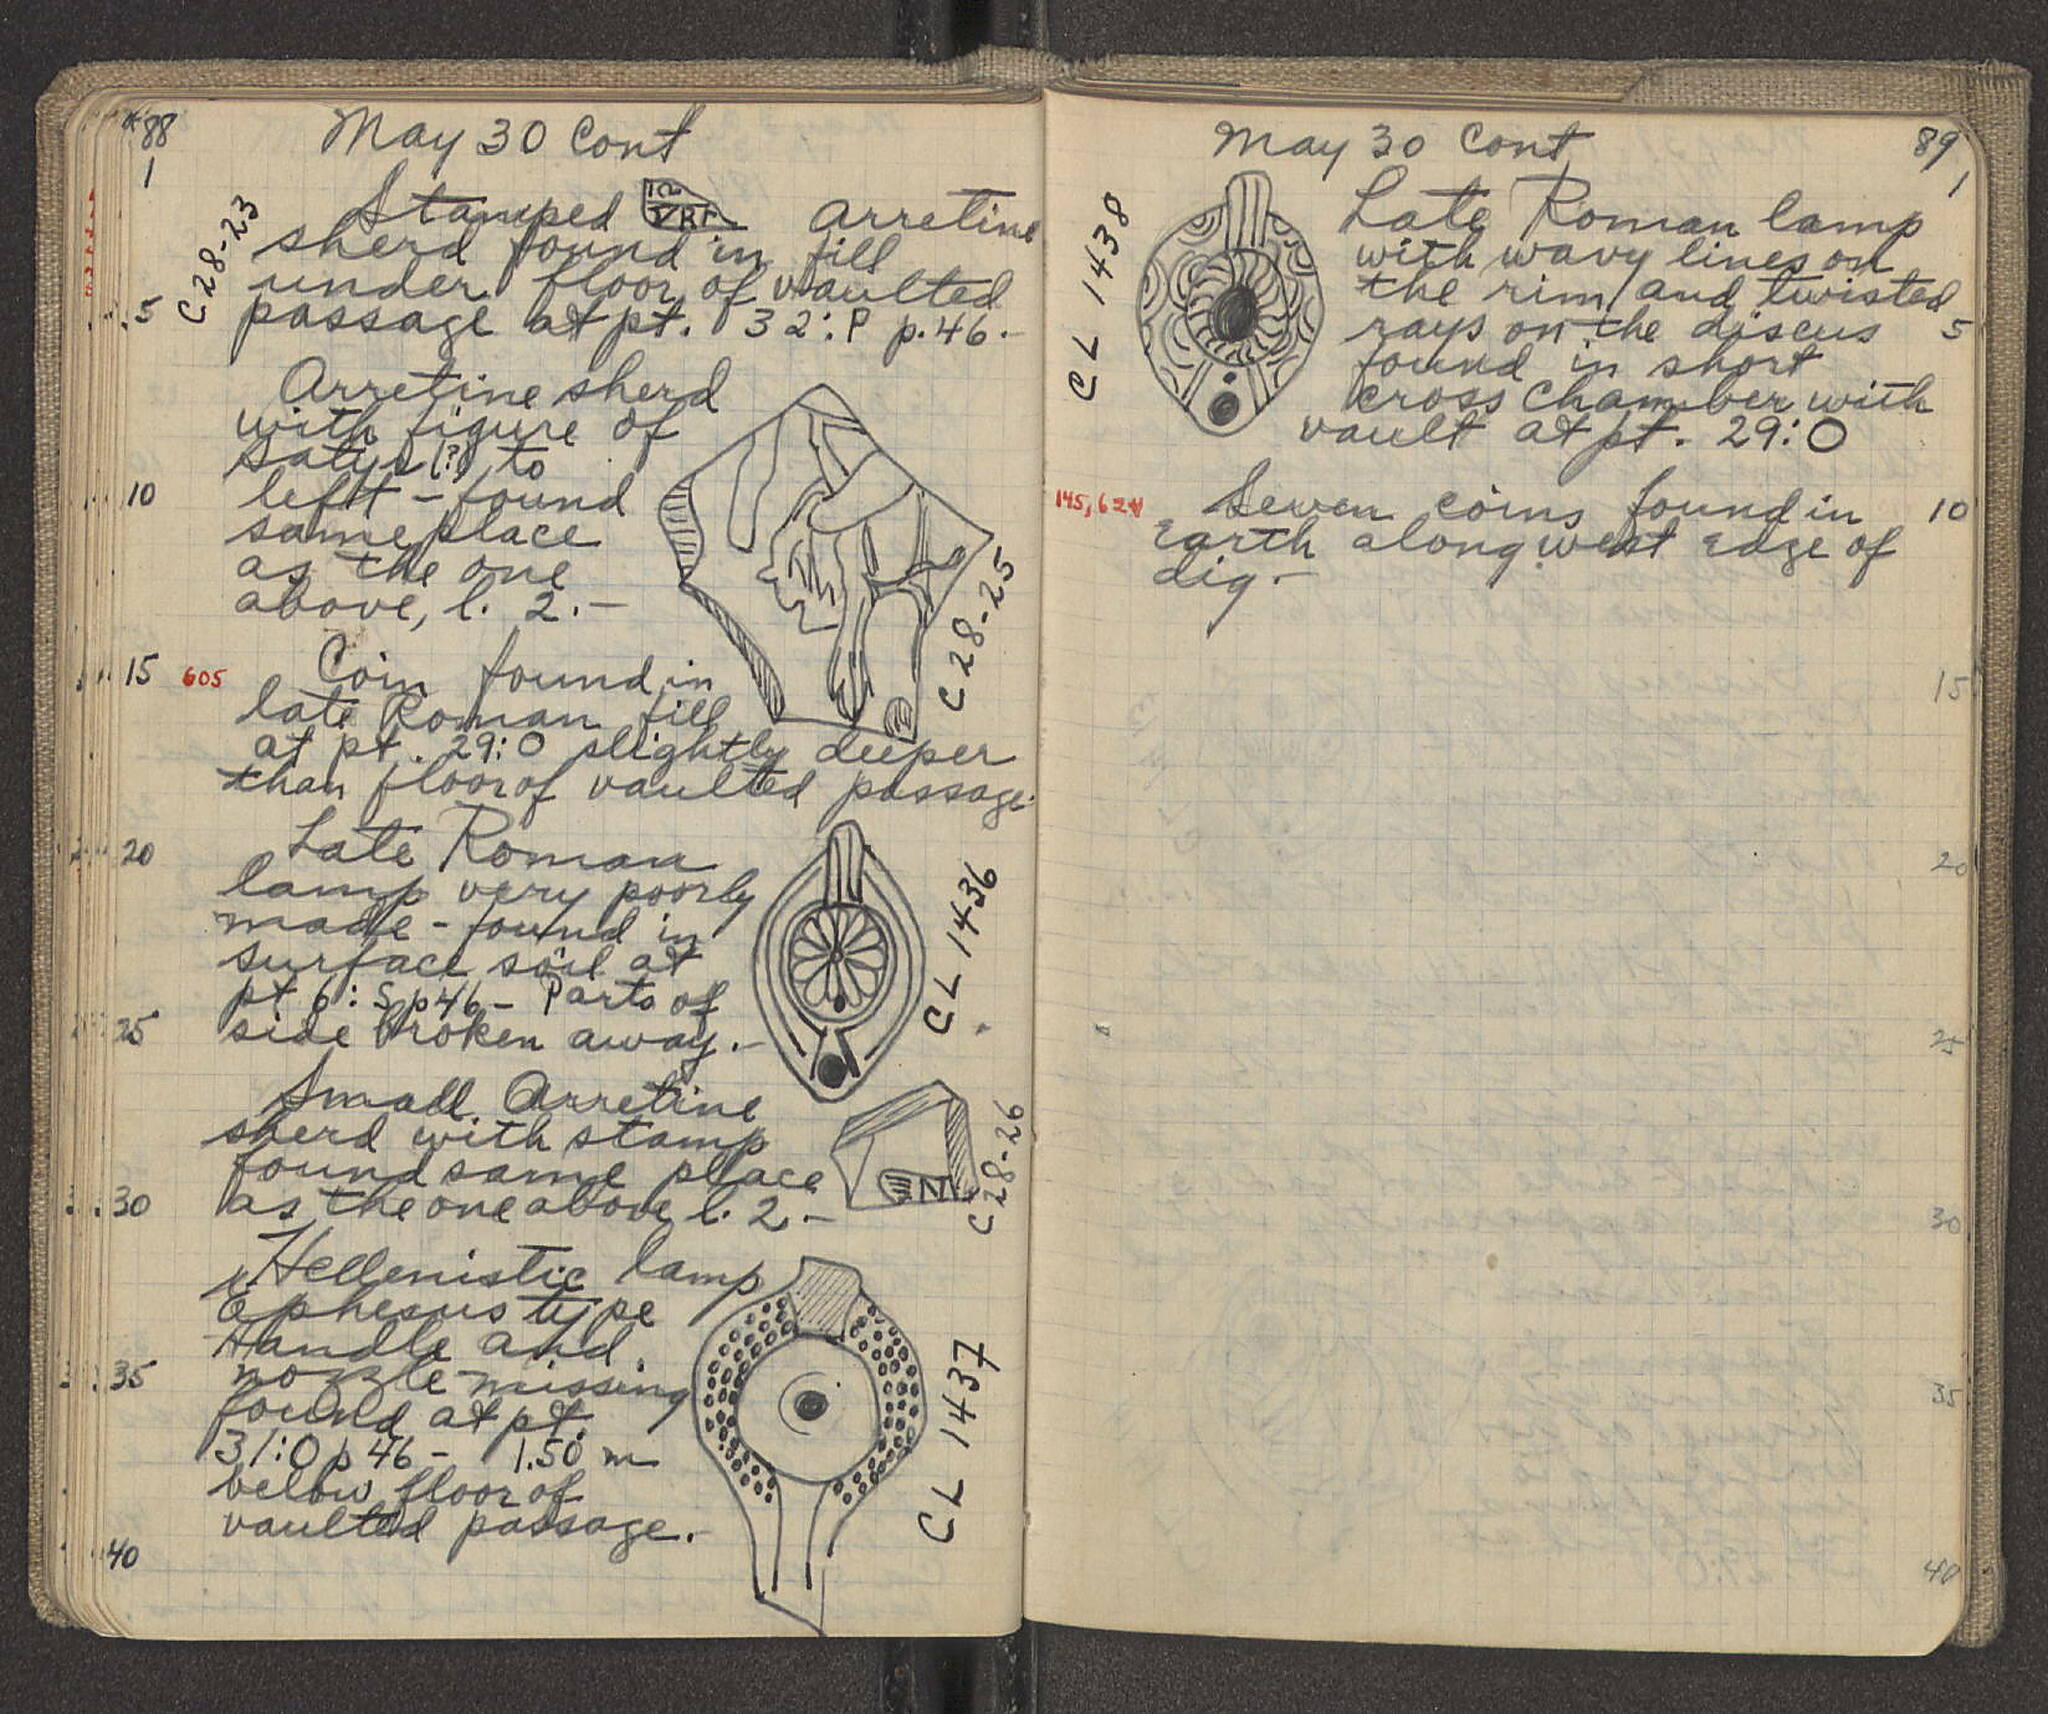 88
May 30 Cont
1
C 28-23
Stamped VRF Arretine
sherd found in fill
under floor of vaulted
5
passage at pt. 32:P p.46.-
Arretine sherd
with figure of
Satyr (?) to
10
left - found
same place
as the one
above, l. 2.-
C 28-25
15
605
Coin found in
late Roman fill
at pt. 29:O slightly deeper
than floor of vaulted passage.
20
Late Roman
lamp very poorly
made - found in
surface soil at
pt 6:S p46 - Parts of
25
side broken away.-
CL 1436
Small Arretine
sherd with stamp
found same place
30
as the one above l. 2.-
N
C 28-26
Hellenistic lamp
Ephesus type
Handle and
35
nozzle missing
found at pt.
31:O p 46 - 1.50 m
below floor of
vaulted passage.-
CL 1437
40
89
May 30 Cont
1
CL 1438
Late Roman lamp
with wavy lines on
the rim and twisted
5
rays on the discus
found in short
cross chamber with
vault at pt. 29:O
10
Seven coins found in
Earth along west edge of
dig.-
15
20
25
30
35
40